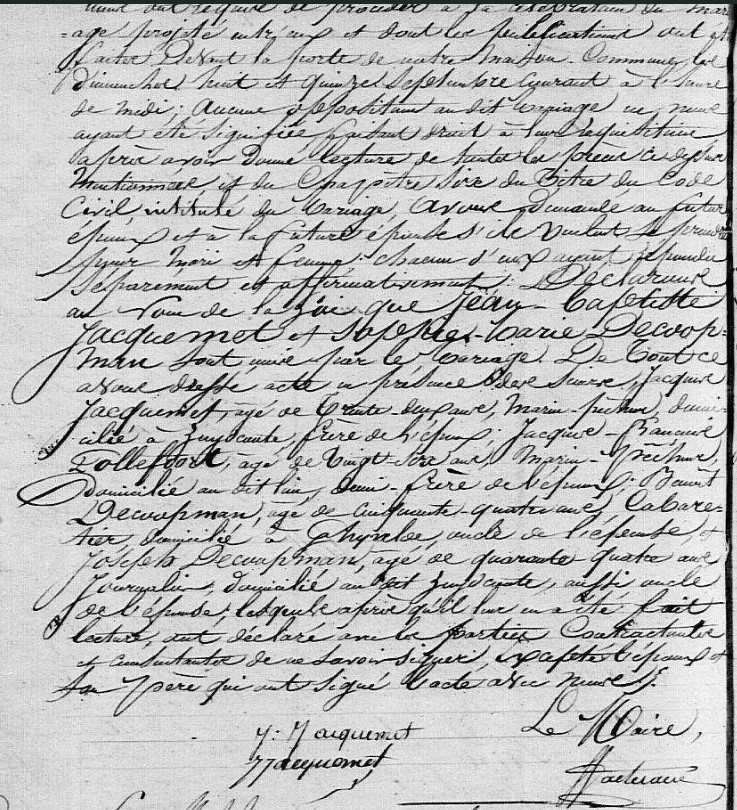 nous ont requis de procéder à la célébration du mari
=age projeté entr'eux et dont les publications ont été
faites Devant la porte de notre maison Commune, les
dimanches huit et quinze Septembre courant à l'heure
de midi; Aucune opposition au dit mariage ne nous
ayant été signifiée, faisant droit à leur réquisitoire
après avoir donné lecture de toutes les pièces ci dessus
Mentionnées, et du Chapitre Six du Titre du Code
Civil intitulé du Mariage, Avons demandé au futur
époux et à la future épouse s'ils veulent se prendre
pour mari et femme: chacun d'eux ayant répondu
séparement et affirmativement; Déclarons
au Nom de la Loi que Jean-Baptiste
Jacquemet et Sophie-Marie Decoop=
man sont unis par le Mariage. De Tout ce
avons dressé acte en présence des sieurs, Jacques
Jacquemet, agé de Trente-deux ans, Marin-pêcheur, domi-
cilié à Zuydcoote, frère de l'époux; Jacques-François
agé de Vingt-six ans, Marin-Pêcheur,
domicilié au dit lieu, demi-frère de l'époux; Benoît
Decoopman, agé de Cinquante-quatre ans, Cabare=
tier, domicilié à Ghyvelde, oncle de l'épouse, et
Joseph Decoopman, agé de quarante-quatre ans
Journalier, domicilié au dit Zuydcoote, aussi oncle
de l'épouse; lesquels après qu'il leur en a été fait
lecture, ont déclaré avec les parties Contractantes
et consentantes de ne savoir signer, excepté l'époux et
son père qui ont signé l'acte avec nous ./.
J: Jacquemet
Le Maire,
Jacquemet